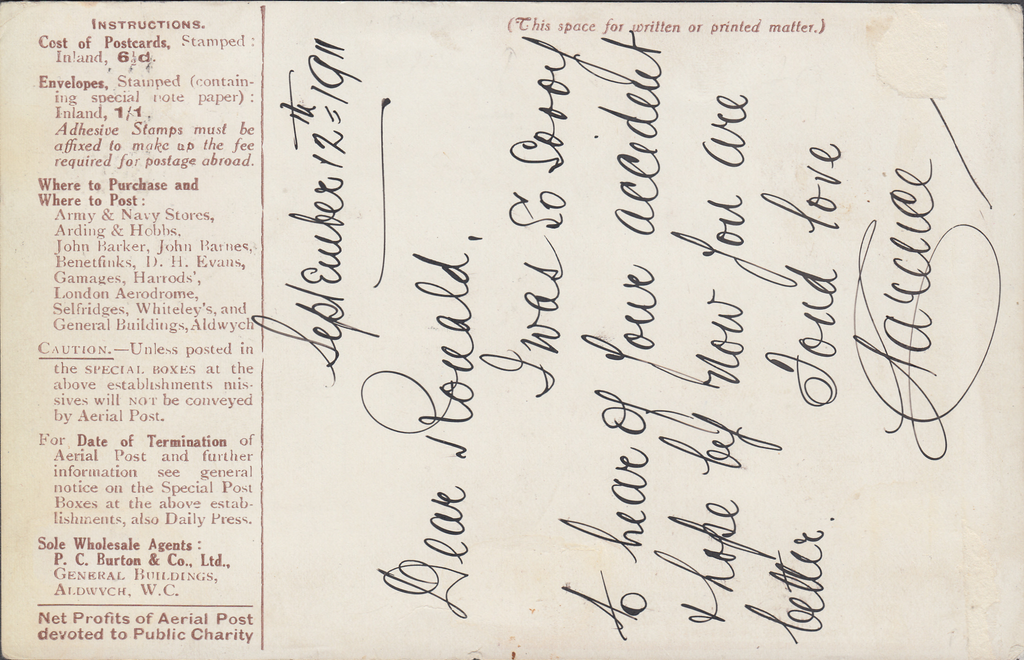 INSTRUCTIONS.
Cost of Postcards, Stamped:
Inland, 6½d.
Envelopes, Stamped (contain-
ing special note paper):
Inland, 1/1,
Adhesive Stamps must be
affixed to make up the fee
required for postage abroad.
Where to Purchase and
Where to Post:
Army & Navy Stores,
Arding & Hobbs,
John Barker, John Barnes,
Benetfinks, D. H. Evans,
Gamages, Harrods',
London Aerodrome,
Selfridges, Whiteley's, and
General Buildings, Aldwych
CAUTION.—Unless posted in
the SPECIAL BOXES at the
above establishments mis-
sives will NOT be conveyed
by Aerial Post.
For Date of Termination of
Aerial Post and further
information see general
notice on the Special Post
Boxes at the above estab-
lishments, also Daily Press.
Sole Wholesale Agents:
P. C. Burton & Co., Ltd.,
GENERAL BUILDINGS,
ALDWYCH, W.C.
Net Profits of Aerial Post
devoted to Public Charity
(This space for written or printed matter.)
September 12th = 1911
Dear Ronald,
I was So Soory
to hear of your accedent
& hope by now you are
better.
Fond love